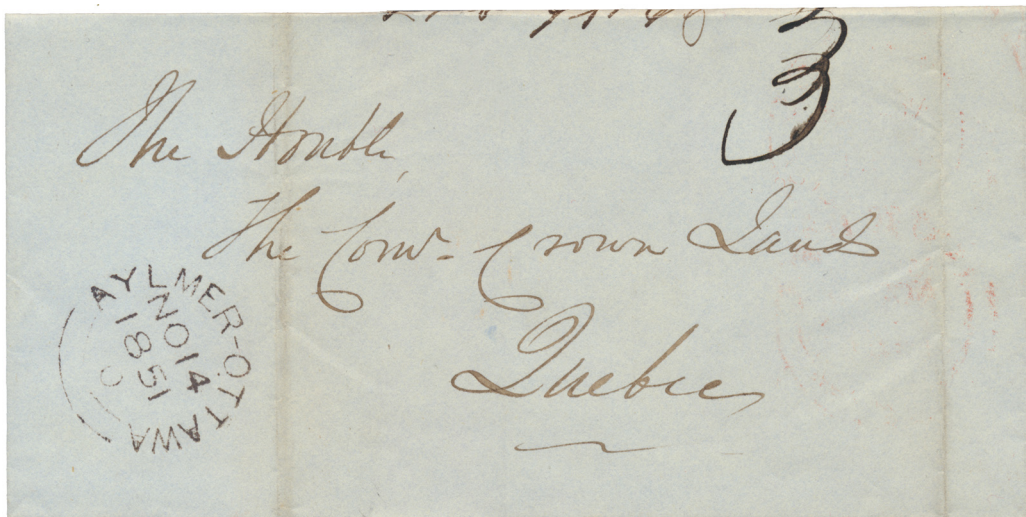 3
The Honble
The Comr. Crown Lands
Quebec
AYLMER-OTTAWA
NO 14
1851